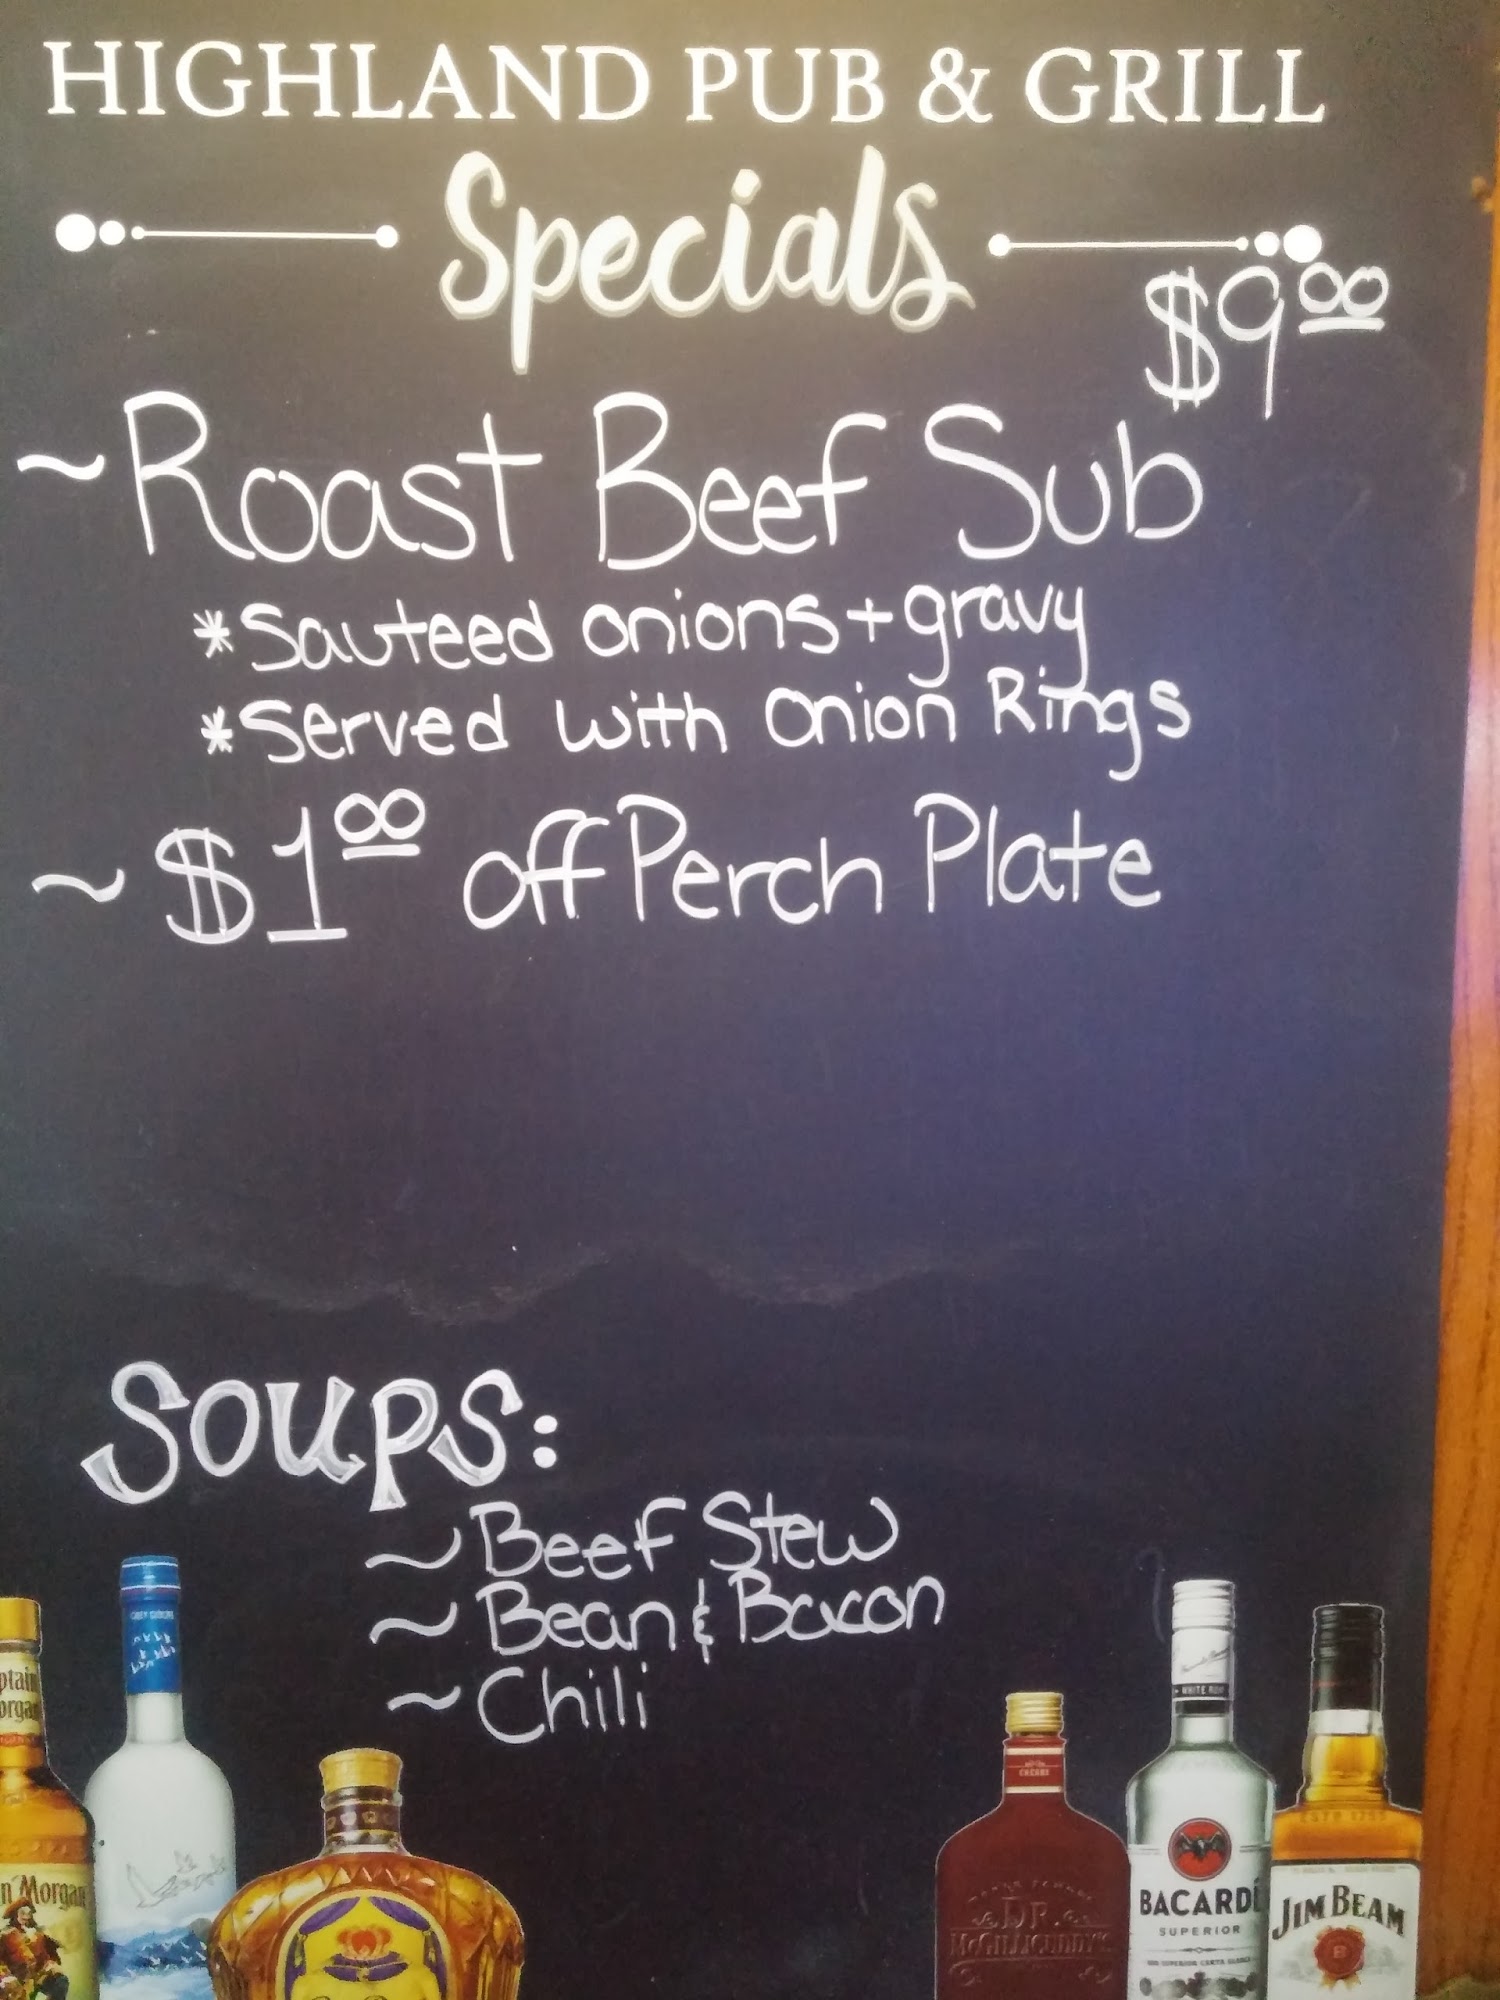 HIGHLAND PUB & GRILL
Specials
$9.00
~Roast Beef Sub
*Sauteed onions + gravy
*Served with Onion Rings
~$1.00 off Perch Plate
Soups:
~Beef Stew
~Bean & Bacon
~Chili
ptain
organ
n Morgan
GREY GOOSE
CHERRY
DR.
McGILLICUDDY'S
WHITE RUM
BACARDÍ
SUPERIOR
ESTD 1795
JIM BEAM
B